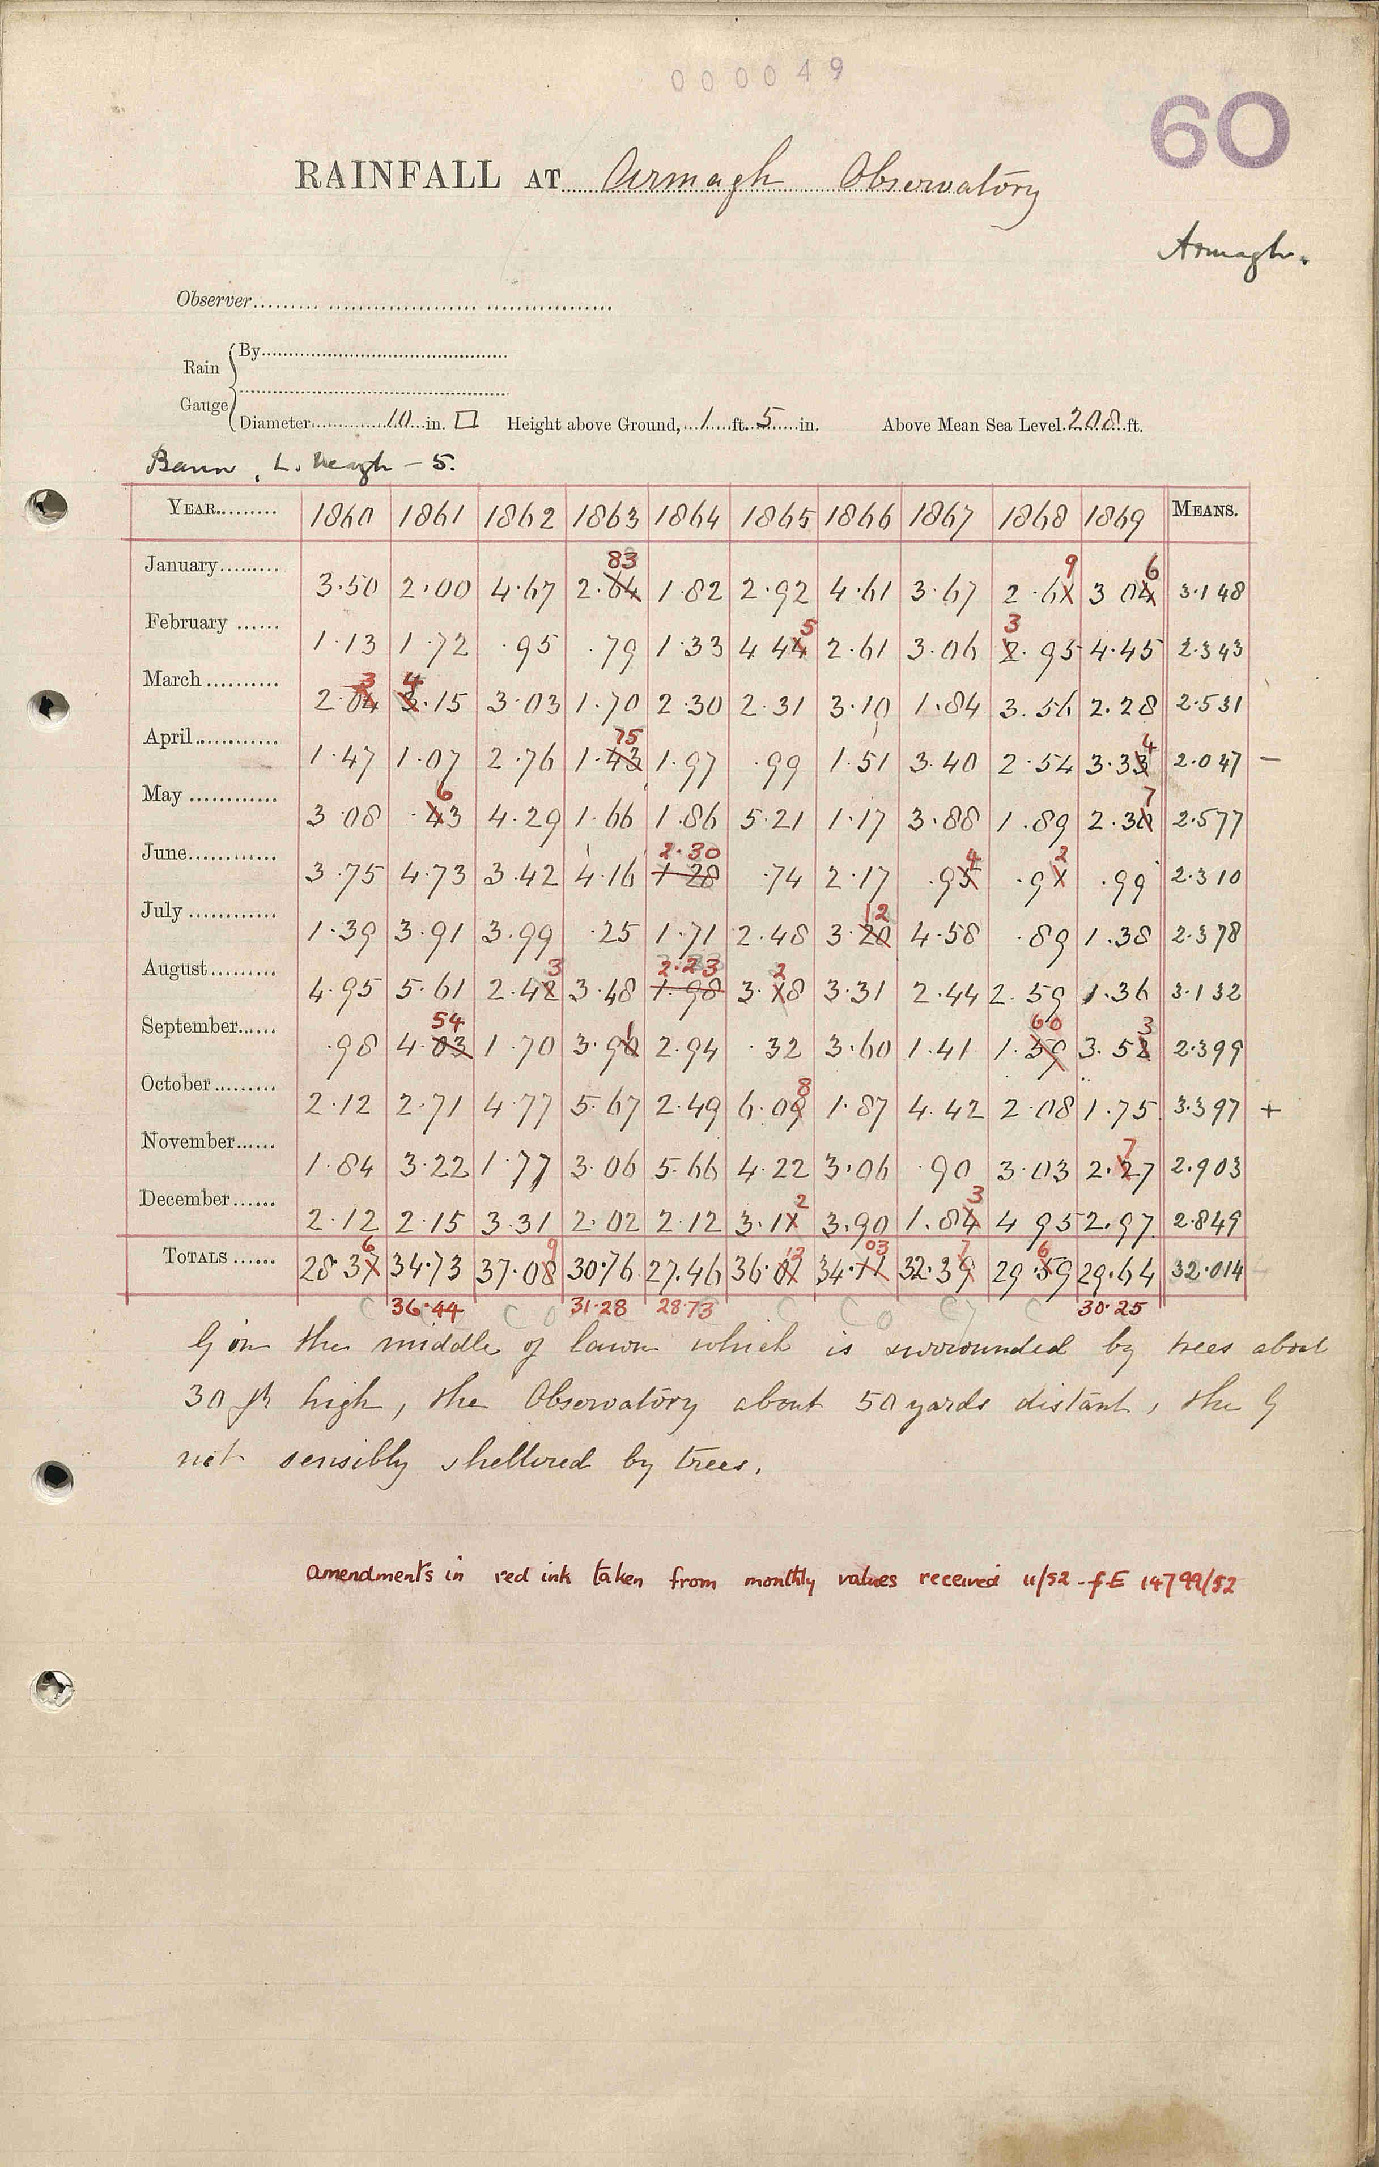 000049
60
RAINFALL AT Armagh Observatory
Armagh.
Observer
Rain Gauge
By
Diameter 10 in. □ Height above Ground, 1 ft. 5 in. Above Mean Sea Level 208 ft.
Bann, L. Neagh - 5.
YEAR 1860 1861 1862 1863 1864 1865 1866 1867 1868 1869 MEANS.
83 9 6
January 3.50 2.00 4.67 2.64 1.82 2.92 4.61 3.67 2.61 3.04 3.148
5 3
February 1.13 1.72 .95 .79 1.33 4.44 2.61 3.06 2.95 4.45 2.343
3 4
March 2.04 3.15 3.03 1.70 2.30 2.31 3.10 1.84 3.56 2.28 2.531
75 4
April 1.47 1.07 2.76 1.43 1.97 .99 1.51 3.40 2.54 3.33 2.047 -
6 7
May 3.08 .43 4.29 1.66 1.86 5.21 1.17 3.88 1.89 2.30 2.577
2.30 4 2
June 3.75 4.73 3.42 4.16 1.28 .74 2.17 .95 .91 .99 2.310
12
July 1.39 3.91 3.99 .25 1.71 2.48 3.20 4.58 .89 1.38 2.378
3 2.23 2
August 4.95 5.61 2.42 3.48 1.98 3.18 3.31 2.44 2.59 1.36 3.132
54 1 60 3
September .98 4.03 1.70 3.90 2.94 .32 3.60 1.41 1.59 3.52 2.399
8
October 2.12 2.71 4.77 5.67 2.49 6.09 1.87 4.42 2.08 1.75 3.397 +
7
November 1.84 3.22 1.77 3.06 5.66 4.22 3.06 .90 3.03 2.27 2.903
2 3
December 2.12 2.15 3.31 2.02 2.12 3.11 3.90 1.84 4.95 2.97 2.849
6 9 12 03 7 6
TOTALS 28.37 34.73 37.08 30.76 27.46 36.07 34.11 32.39 29.59 29.64 32.014
36.44 31.28 28.73 30.25
G in the middle of lawn which is surrounded by trees about
30 ft high, the Observatory about 50 yards distant, the G
not sensibly sheltered by trees.
Amendments in red ink taken from monthly values received 11/52 - f.E 14799/52